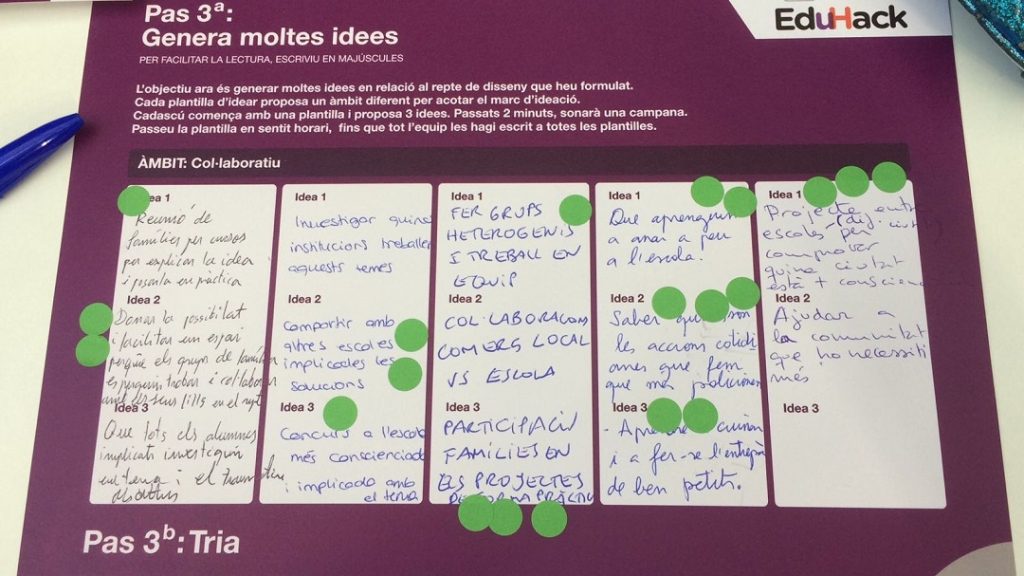 EduHack
Pas 3ª:
Genera moltes idees
PER FACILITAR LA LECTURA, ESCRIVIU EN MAJÚSCULES
L'objectiu ara és generar moltes idees en relació al repte de disseny que heu formulat.
Cada plantilla d'idear proposa un àmbit diferent per acotar el marc d'ideació.
Cadascú comença amb una plantilla i proposa 3 idees. Passats 2 minuts, sonarà una campana.
Passeu la plantilla en sentit horari, fins que tot l'equip les hagi escrit a totes les plantilles.
ÀMBIT: Col·laboratiu
Idea 1
Reunió de
famílies per cursos
per explicar la idea
i posarla en pràctica
Idea 2
Donar la possibilitat
i facilitar un espai
perquè els grups de famílies
es puguin trobar i col·laborar
amb els seus fills en el rept
Idea 3
Que tots els alumnes
implicats investiguin
i el
Idea 1
Investigar quins
institucions treballen
aquests temes
Idea 2
Compartir amb
altres escoles
implicades les
solucions
Idea 3
Concurs a l'escola
més conscienciada
i implicada amb
el tema
Idea 1
FER GRUPS
HETEROGENIS
I TREBALL EN
EQUIP
Idea 2
COL·LABORACIÓ
COMERÇ LOCAL
VS ESCOLA
Idea 3
PARTICIPACIÓ
FAMÍLIES EN
ELS PROJECTES
DE FORMA PRÀCTIC
Idea 1
Que aprenguin
a anar a peu
a l'escola.
Idea 2
Saber quines son
les accions cotidi
anes que fem
que més
Idea 3
- Aprendre a cuinar
i a fer-se l'entrepà
de ben petits.
Idea 1
Projecte entre
escoles per
comprovar
quina ciutat
està + conscienc
Idea 2
Ajudar a
la comunitat
que ho necessiti
més
Idea 3
Pas 3b: Tria